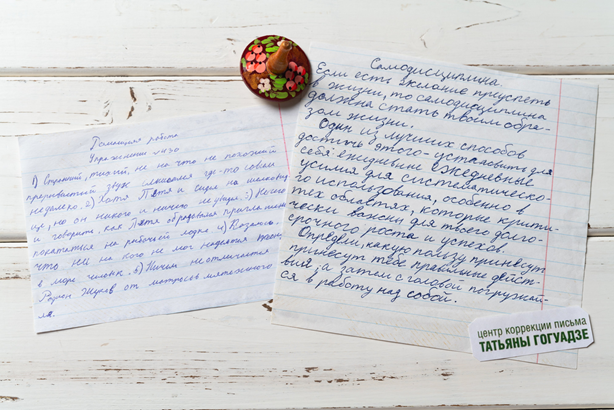 Домашняя работа
Упражнение №20
1) Странный, тихий, не на что не похожий
прерывистый звук слышался где-то совсем
недалеко. 2) Хотя Петя и сидел на
ще, но он никого и ничего не видел. 3)
и говорить, как Петя обрадовался приглашению
покататься на рыбачей лодке 4) Казалось
что ни на кого не мог надеяться
в мире человек. 5) Ничем не отличается
Родион Жуков от матросов мятежного
ля.
Самодисциплина.
Если есть желание приуспеть
в жизни, то самодисциплина
должна стать твоим обра-
зом жизни.
Один из лучших способов
достичь этого - установить для
себя ежедневные ежедневные
усилия для систематическо-
го использования, особенно в
тех областях, которые крити-
чески важны для твоего долго-
срочного роста и успехов.
Определи, какую пользу принесут
принесут тебе правильные дейст-
вия, а затем с головой погружай-
ся в работу над собой.
центр коррекции письма
ТАТЬЯНЫ ГОГУАДЗЕ